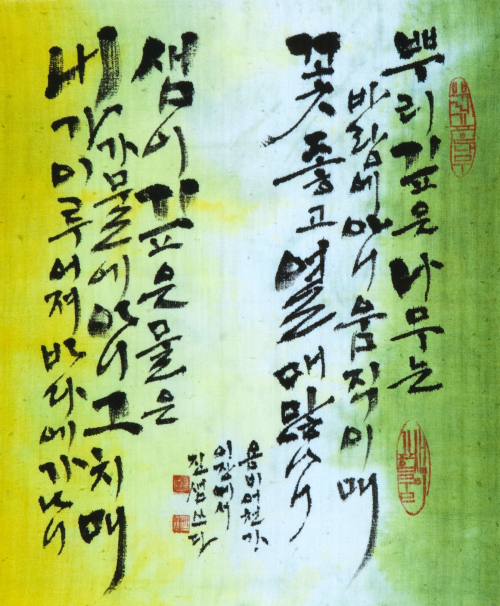 뿌리 깊은 나무는
바람에 아니 움직이매
꽃 좋고 열매 많나니
샘이 깊은 물은
가물에 아니 그치매
내가 이루어져 바다에 가나니
용비어천가
이장에서
진샘 쓰다